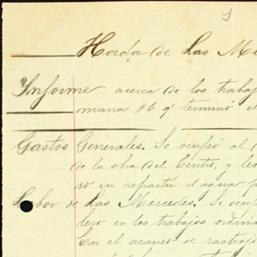 Hada de Las Me
Informe acerca de los trabaj
mana 26 qe terminó el
Gastos Generales. Se
de la obra del Centro, y
ro en repartir el agua p
Labor de Las Mercedes. Se
lero en los trabajos ordina
En el acarreo de